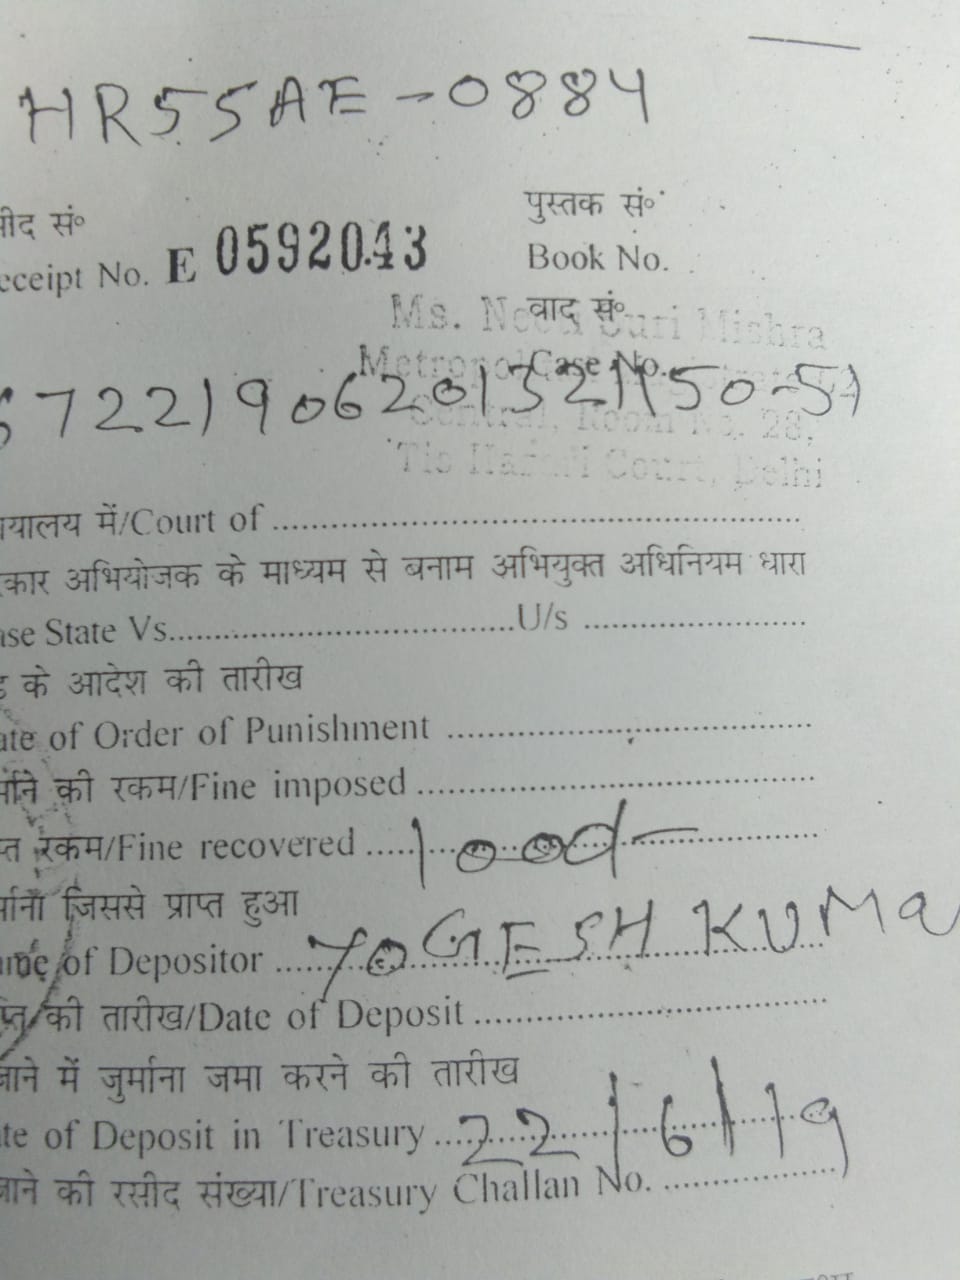 HR55AE-0884
सीद सं॰ पुस्तक सं॰
eceipt No. E 0592043 Book No.
वाद सं॰
Ms. Neetu Suri Mishra
Case No.
7221906201321150-51
Room No. 28,
Tis Hazari Court, Delhi
यालय में/Court of
कार अभियोजक के माध्यम से बनाम अभियुक्त अधिनियम धारा
ase State Vs. U/s
के आदेश की तारीख
ate of Order of Punishment
र्माने की रकम/Fine imposed
प्त रकम/Fine recovered 1000/-
र्माना जिससे प्राप्त हुआ
of Depositor YOGESH KUMA
प्त की तारीख/Date of Deposit
जाने में जुर्माना जमा करने की तारीख
te of Deposit in Treasury 22/6/19
जाने की रसीद संख्या/Treasury Challan No.